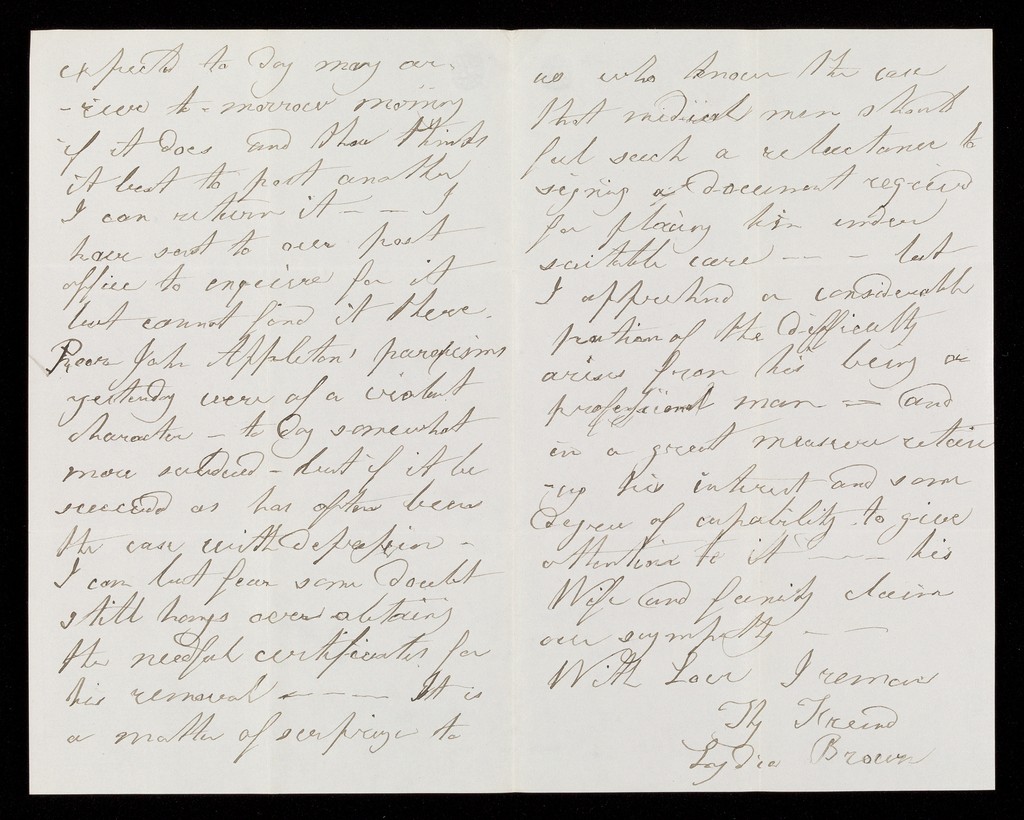 expected to day may ar-
-rive to-morrow morning
if it does and thou thinks
it best to post another
I can return it - - I
have sent to our post
office to enquire for it
but cannot find it there.
Poor John Appleton's paroxisms
yesterday were of a violent
character - to day somewhat
more subdued - but if it be
succeeded as has often been
the case with depression -
I can but fear some doubt
still hangs over obtaining
the needful certificates for
his removal - - - - It is
a matter of surprize to
us who know the case
that medical men should
feel such a reluctance to
signing a document required
for placing him under
suitable care - - - but
I apprehend a considerable
portion of the difficulty
arises from his being a
professional man = and
in a great measure retain
-ing his interest and some
degree of capability to give
attention to it - - - his
Wife and family claim
our sympathy - -
With Love I remain
Thy Freind
Lydia Brown